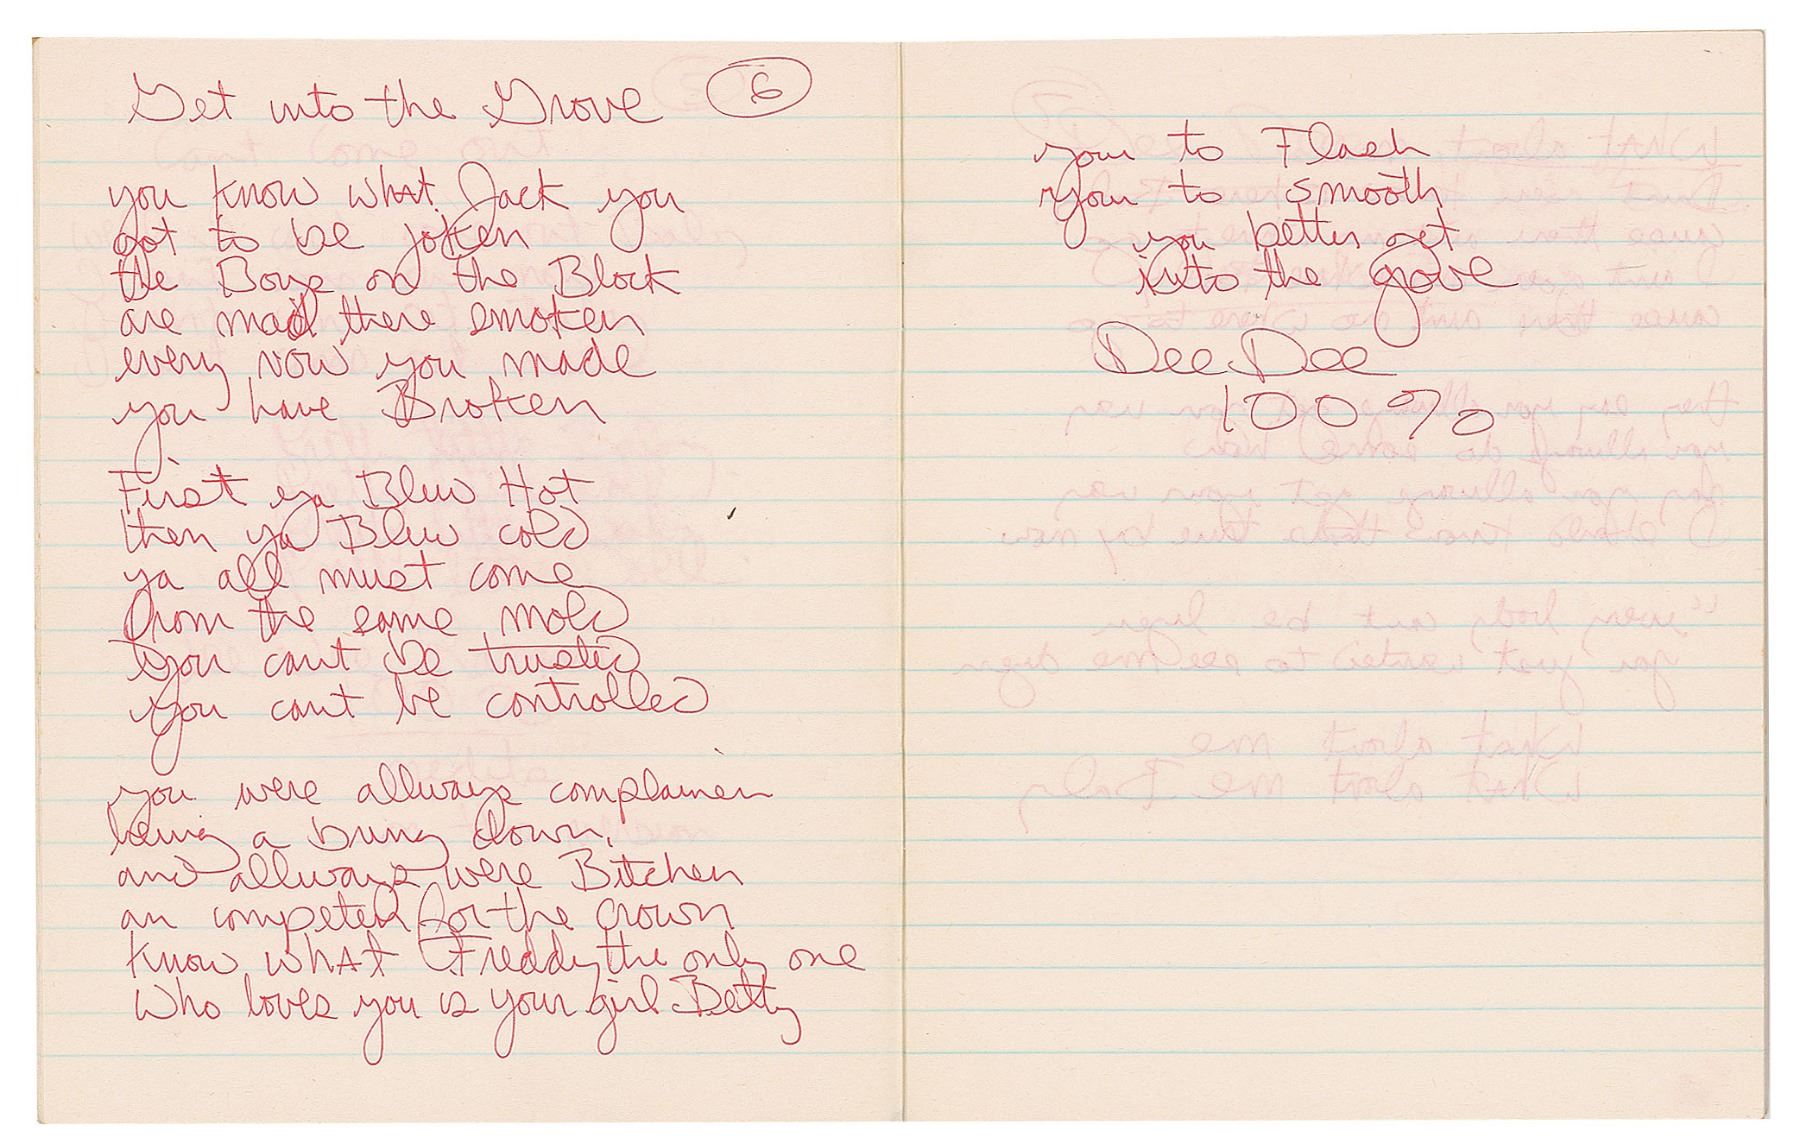 Get into the Grove 6
you know what Jack you
got to be joken
the Boys on the Block
are mad there smoken
every vow you made
you have Broken
First ya Blew Hot
then ya Blew cold
ya all must come
from the same mold
you cant be trusted
you cant be controlled
you were allways complainen
being a bring down,
and allways were Bitchen
an competen for the crown
know what Freddy the only one
who loves you is your girl Betty
your to Flash
your to smooth
you better get
into the grove
Dee Dee
100%